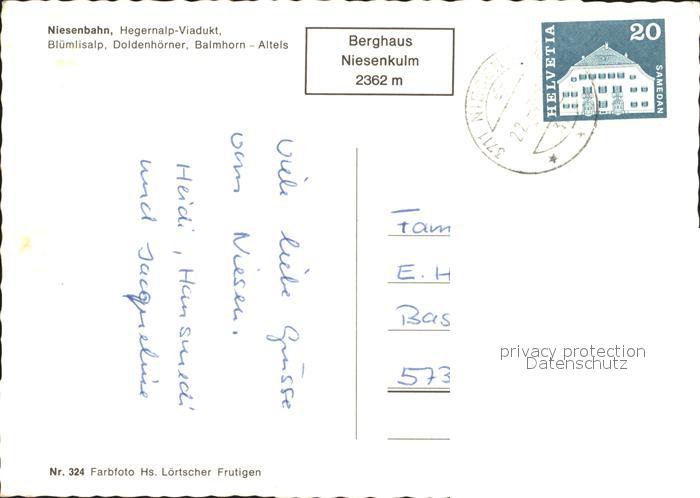 Niesenbahn, Hegernalp-Viadukt,
Blümlisalp, Doldenhörner, Balmhorn – Altels
Berghaus
Niesenkulm
2362 m
HELVETIA
20
SAMEDAN
3711
22.
Viele liebe Grüsse
vom Niesen.
Heidi, Hansruedi
und Jacqueline
Fam
E. H
Bas
573
privacy protection
Datenschutz
Nr. 324 Farbfoto Hs. Lörtscher Frutigen